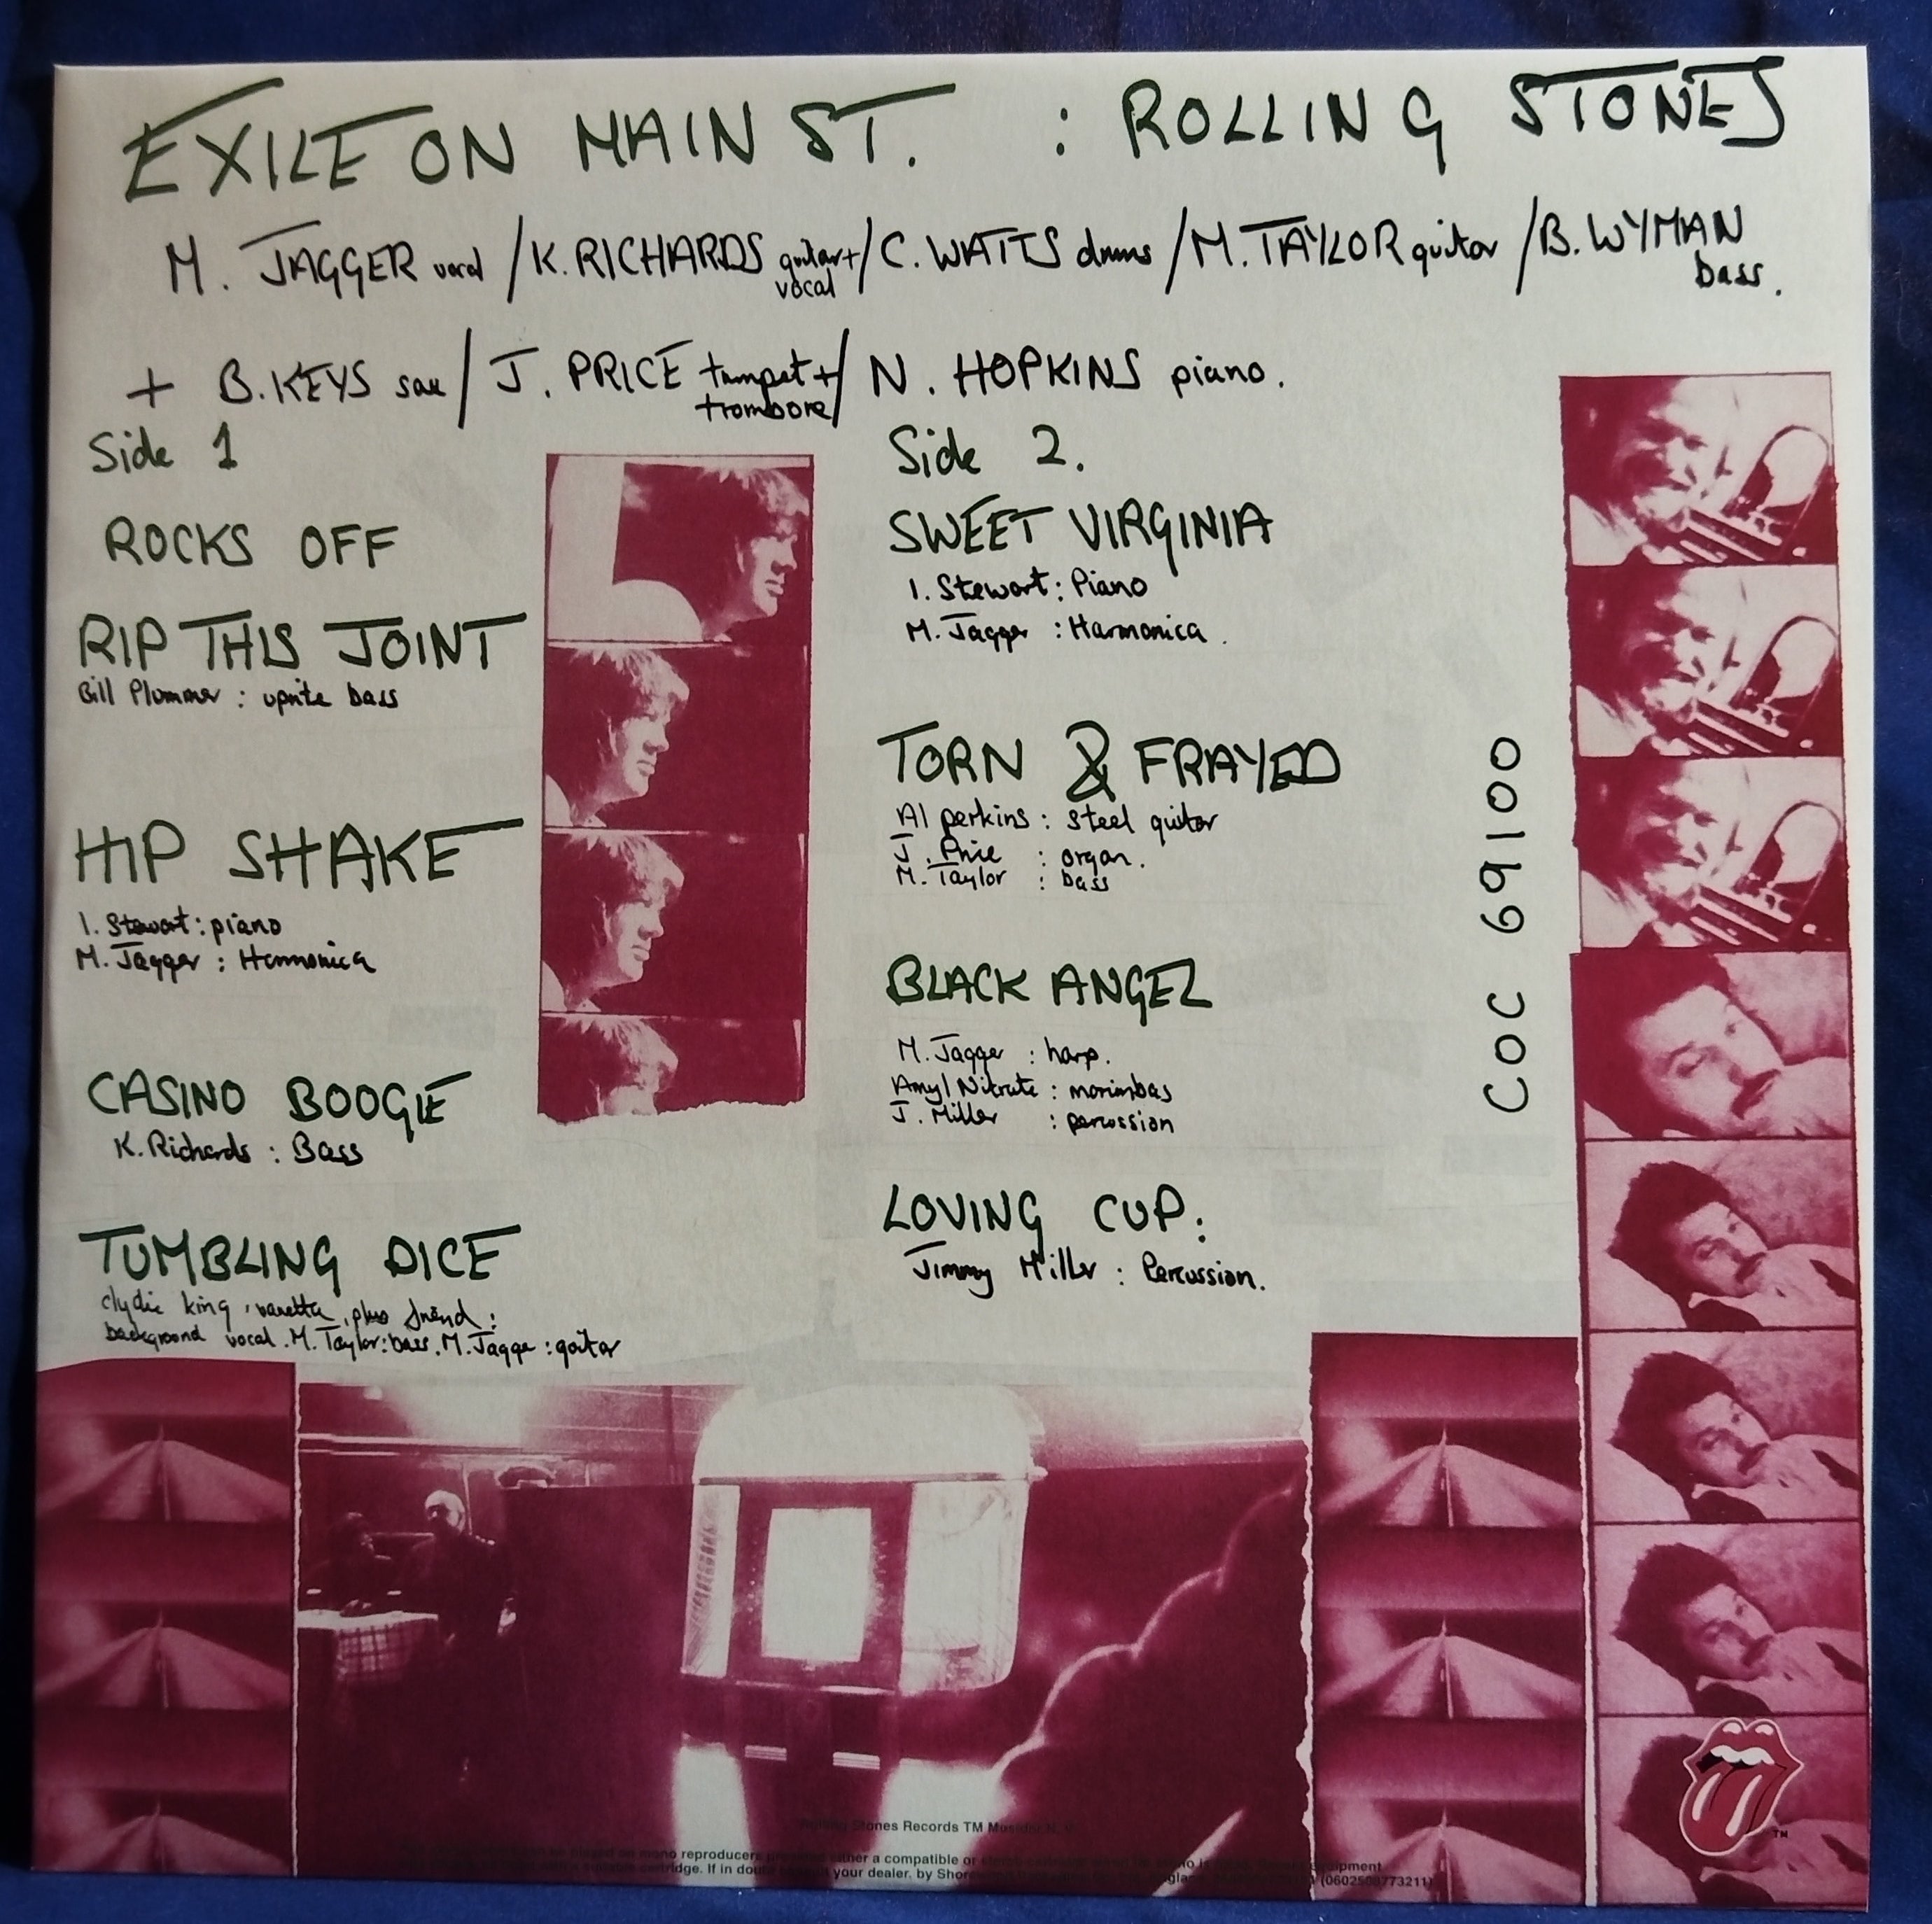 EXILE ON MAIN ST. : ROLLING STONES
M. JAGGER vocal / K. RICHARDS guitar + vocal / C. WATTS drums / M. TAYLOR guitar / B. WYMAN bass.
+ B. KEYS sax / J. PRICE trumpet + trombone / N. HOPKINS piano.
Side 1
ROCKS OFF
RIP THIS JOINT
Bill Plummer : uprite bass
HIP SHAKE
I. Stewart : piano
M. Jagger : Harmonica
CASINO BOOGIE
K. Richards : Bass
TUMBLING DICE
clydie king, vanetta, plus friend :
background vocal. M. Taylor : bass. M. Jagger : guitar
Side 2.
SWEET VIRGINIA
I. Stewart : Piano
M. Jagger : Harmonica.
TORN & FRAYED
Al perkins : steel guitar
J. Price : organ.
M. Taylor : bass
BLACK ANGEL
M. Jagger : harp.
Amyl Nitrate : marimbas
J. Miller : percussion
LOVING CUP :
Jimmy Miller : Percussion.
COC 69100
Stones Records TM
mono reproducers either a compatible or
cartridge. If in doubt your dealer. by
(0602508773211)
TM